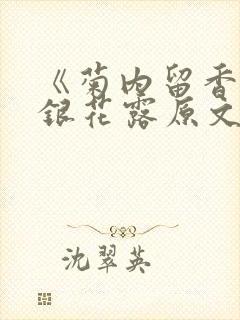 《菊内留香
銀花露原文
沈翠英